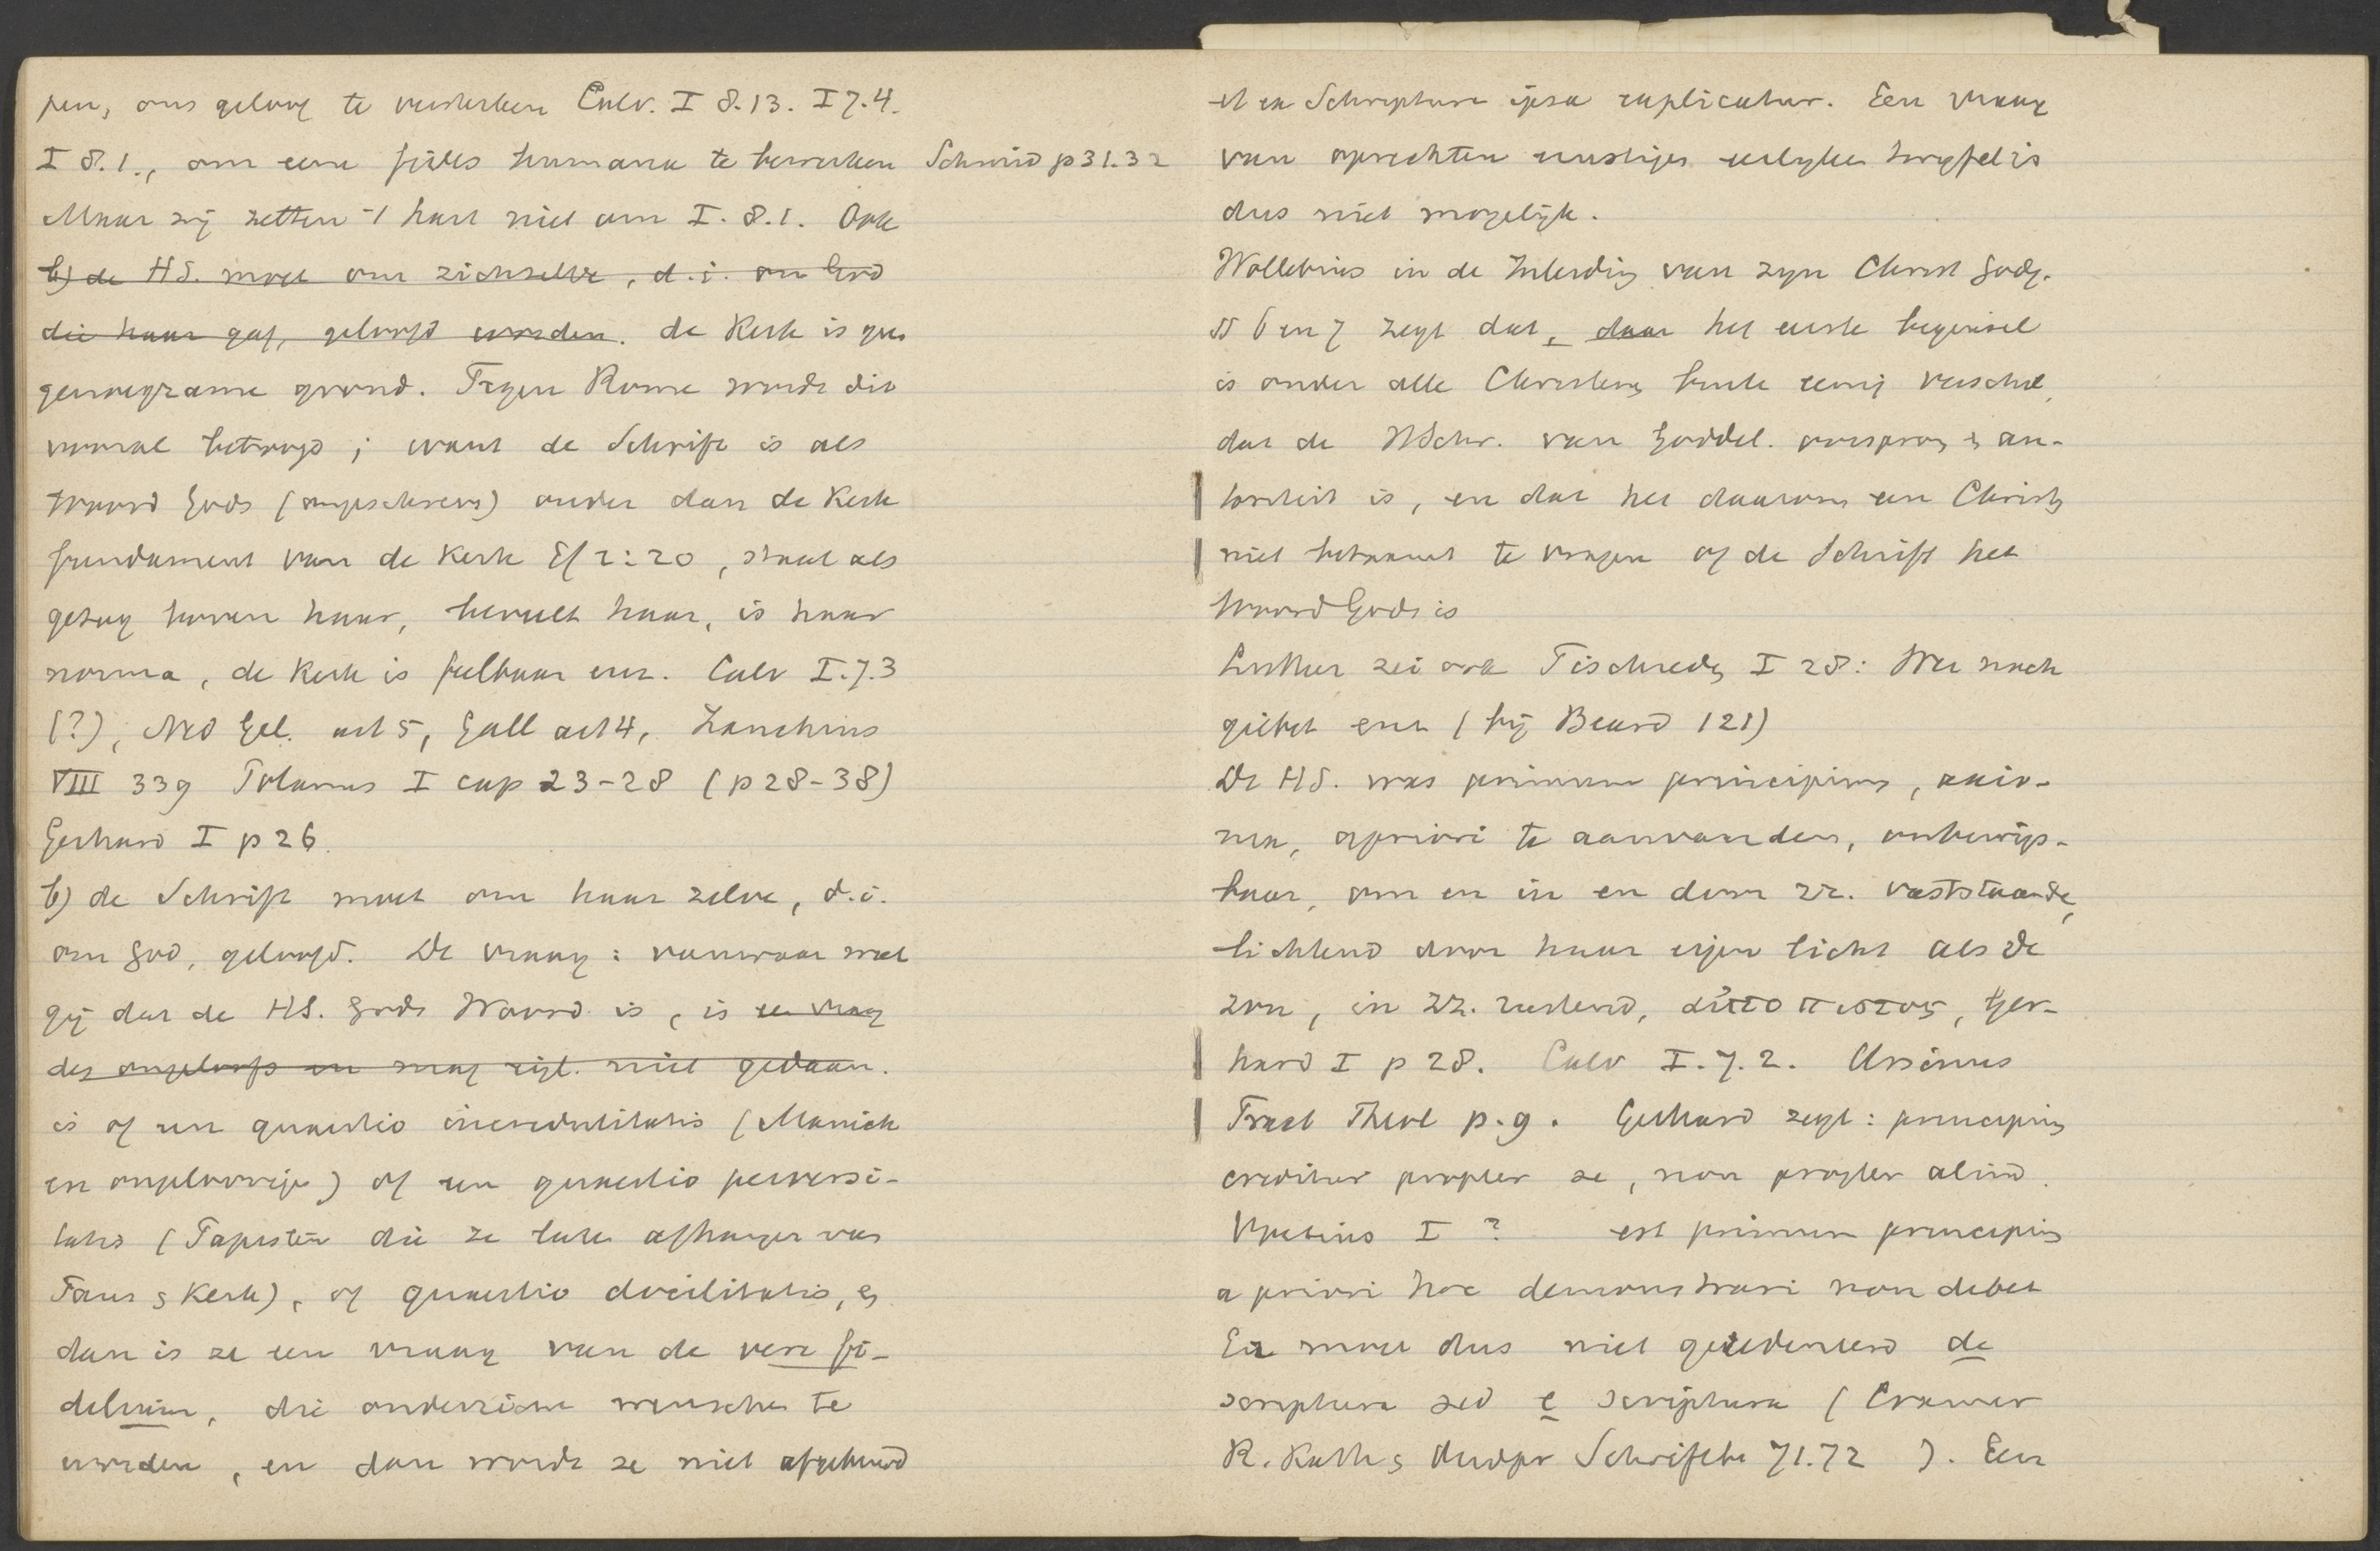 pen, ons geloof te versterken Calv. I 8.13. I 7.4.
I 8.1., om eene fides humana te bewerken Schmid p 31.32
Maar zij zetten 't hart niet om I. 8.1. Ook
b) de HS. moet om zichzelve, d.i. om God
die haar gaf, geloofd worden. de Kerk is geen
genoegzame grond. Tegen Rome wordt dit
vooral betoogd; want de Schrift is als
Woord Gods (ongeschreven) ouder dan de Kerk
fundament van de Kerk Ef 2:20, staat als
gezag boven haar, beveelt haar, is haar
norma, de Kerk is feilbaar enz. Calv I.7.3
(?), Ned Gel. art 5, Gall art 4, Zanchius
VIII 339 Polanus I cap 23-28 (p 28-38)
Gerhard I p 26.
b) de Schrift moet om haar zelve, d.i.
om God, geloofd. De vraag: vanwaar weet
gij dat de HS. Gods Woord is, is een vraag
des ongeloofs en mag eigl. niet gedaan.
is of een quaestio incredulitatis (Manich
en ongeloovige) of een quaestio perversi-
tatis (Papisten die ze laten afhangen van
Paus en Kerk), of quaestio docilitatis, en
dan is ze een vraag van de vere fi-
delium, die onderwezen wenschen te
worden, en dan wordt ze niet afgekeurd
et ex Schriptura ipsa explicatur. Een vraag
van oprechten ernstigen eerlyken twyfel is
dus niet mogelijk.
Wollebius in de Inleiding van zyn Christ Godg.
§§ 6 en 7 zegt dat, daar het eerste beginsel
is onder alle Christenen buiten eenig verschil,
dat de HSchr. van Goddel. oorsprong en au-
toriteit is, en dat het daarom een Christen
niet betaamt te vragen of de Schrift het
Woord Gods is
Luther zei ook Tischreden I 28: Wer nach
giebet enz (bij Beard 121)
De HS. was primum principium, axio-
ma, apriori te aanvaarden, onbewijs-
baar, om en in en door zz. vaststaande,
lichtend door haar eigen licht als de
zon, in zz. rustend, αὐτοπιστος, Ger-
hard I p 28. Calv I.7.2. Ursinus
Tract Theol p. 9. Gerhard zegt: principium
creditur propter se, non propter aliud.
Voetius I ? est primum principium
a priori hoc demonstrari non debet
Er moet dus niet geredeneerd de
scriptura sed e scriptura (Cramer
R. Kath en Oudpr Schriftbe 71.72 ). Een